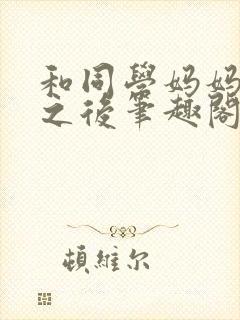 和同學妈妈
之後筆趣閣
頓維尔